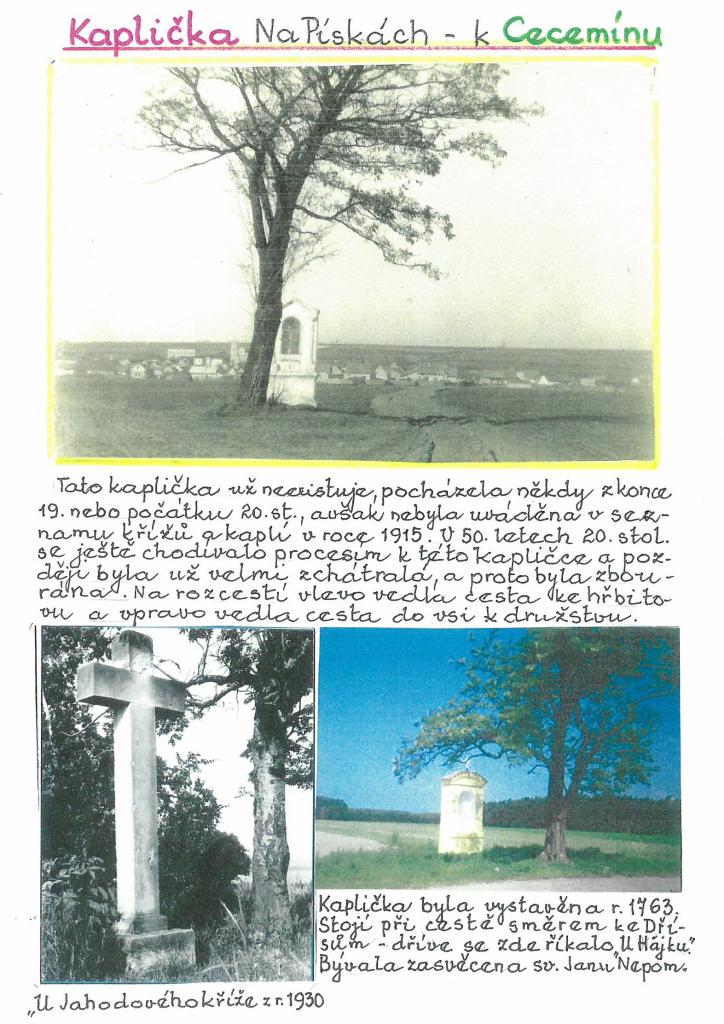 Kaplička Na Pískách - k Cecemínu
Tato kaplička už neexistuje, pocházela někdy z konce
19. nebo počátku 20. st., avšak nebyla uváděna v sez-
namu křížů a kaplí v roce 1915. V 50. letech 20. stol.
se ještě chodívalo procesím k této kapličce a poz-
ději byla už velmi zchátralá, a proto byla zbou-
rána. Na rozcestí vlevo vedla cesta ke hřbito-
vu a vpravo vedla cesta do vsi k družstvu.
Kaplička byla vystavěna r. 1763.
Stojí při cestě směrem ke Dří-
sům - dříve se zde říkalo „U Hájku".
Bývala zasvěcena sv. Janu Nepom.
„U Jahodového kříže z r. 1930